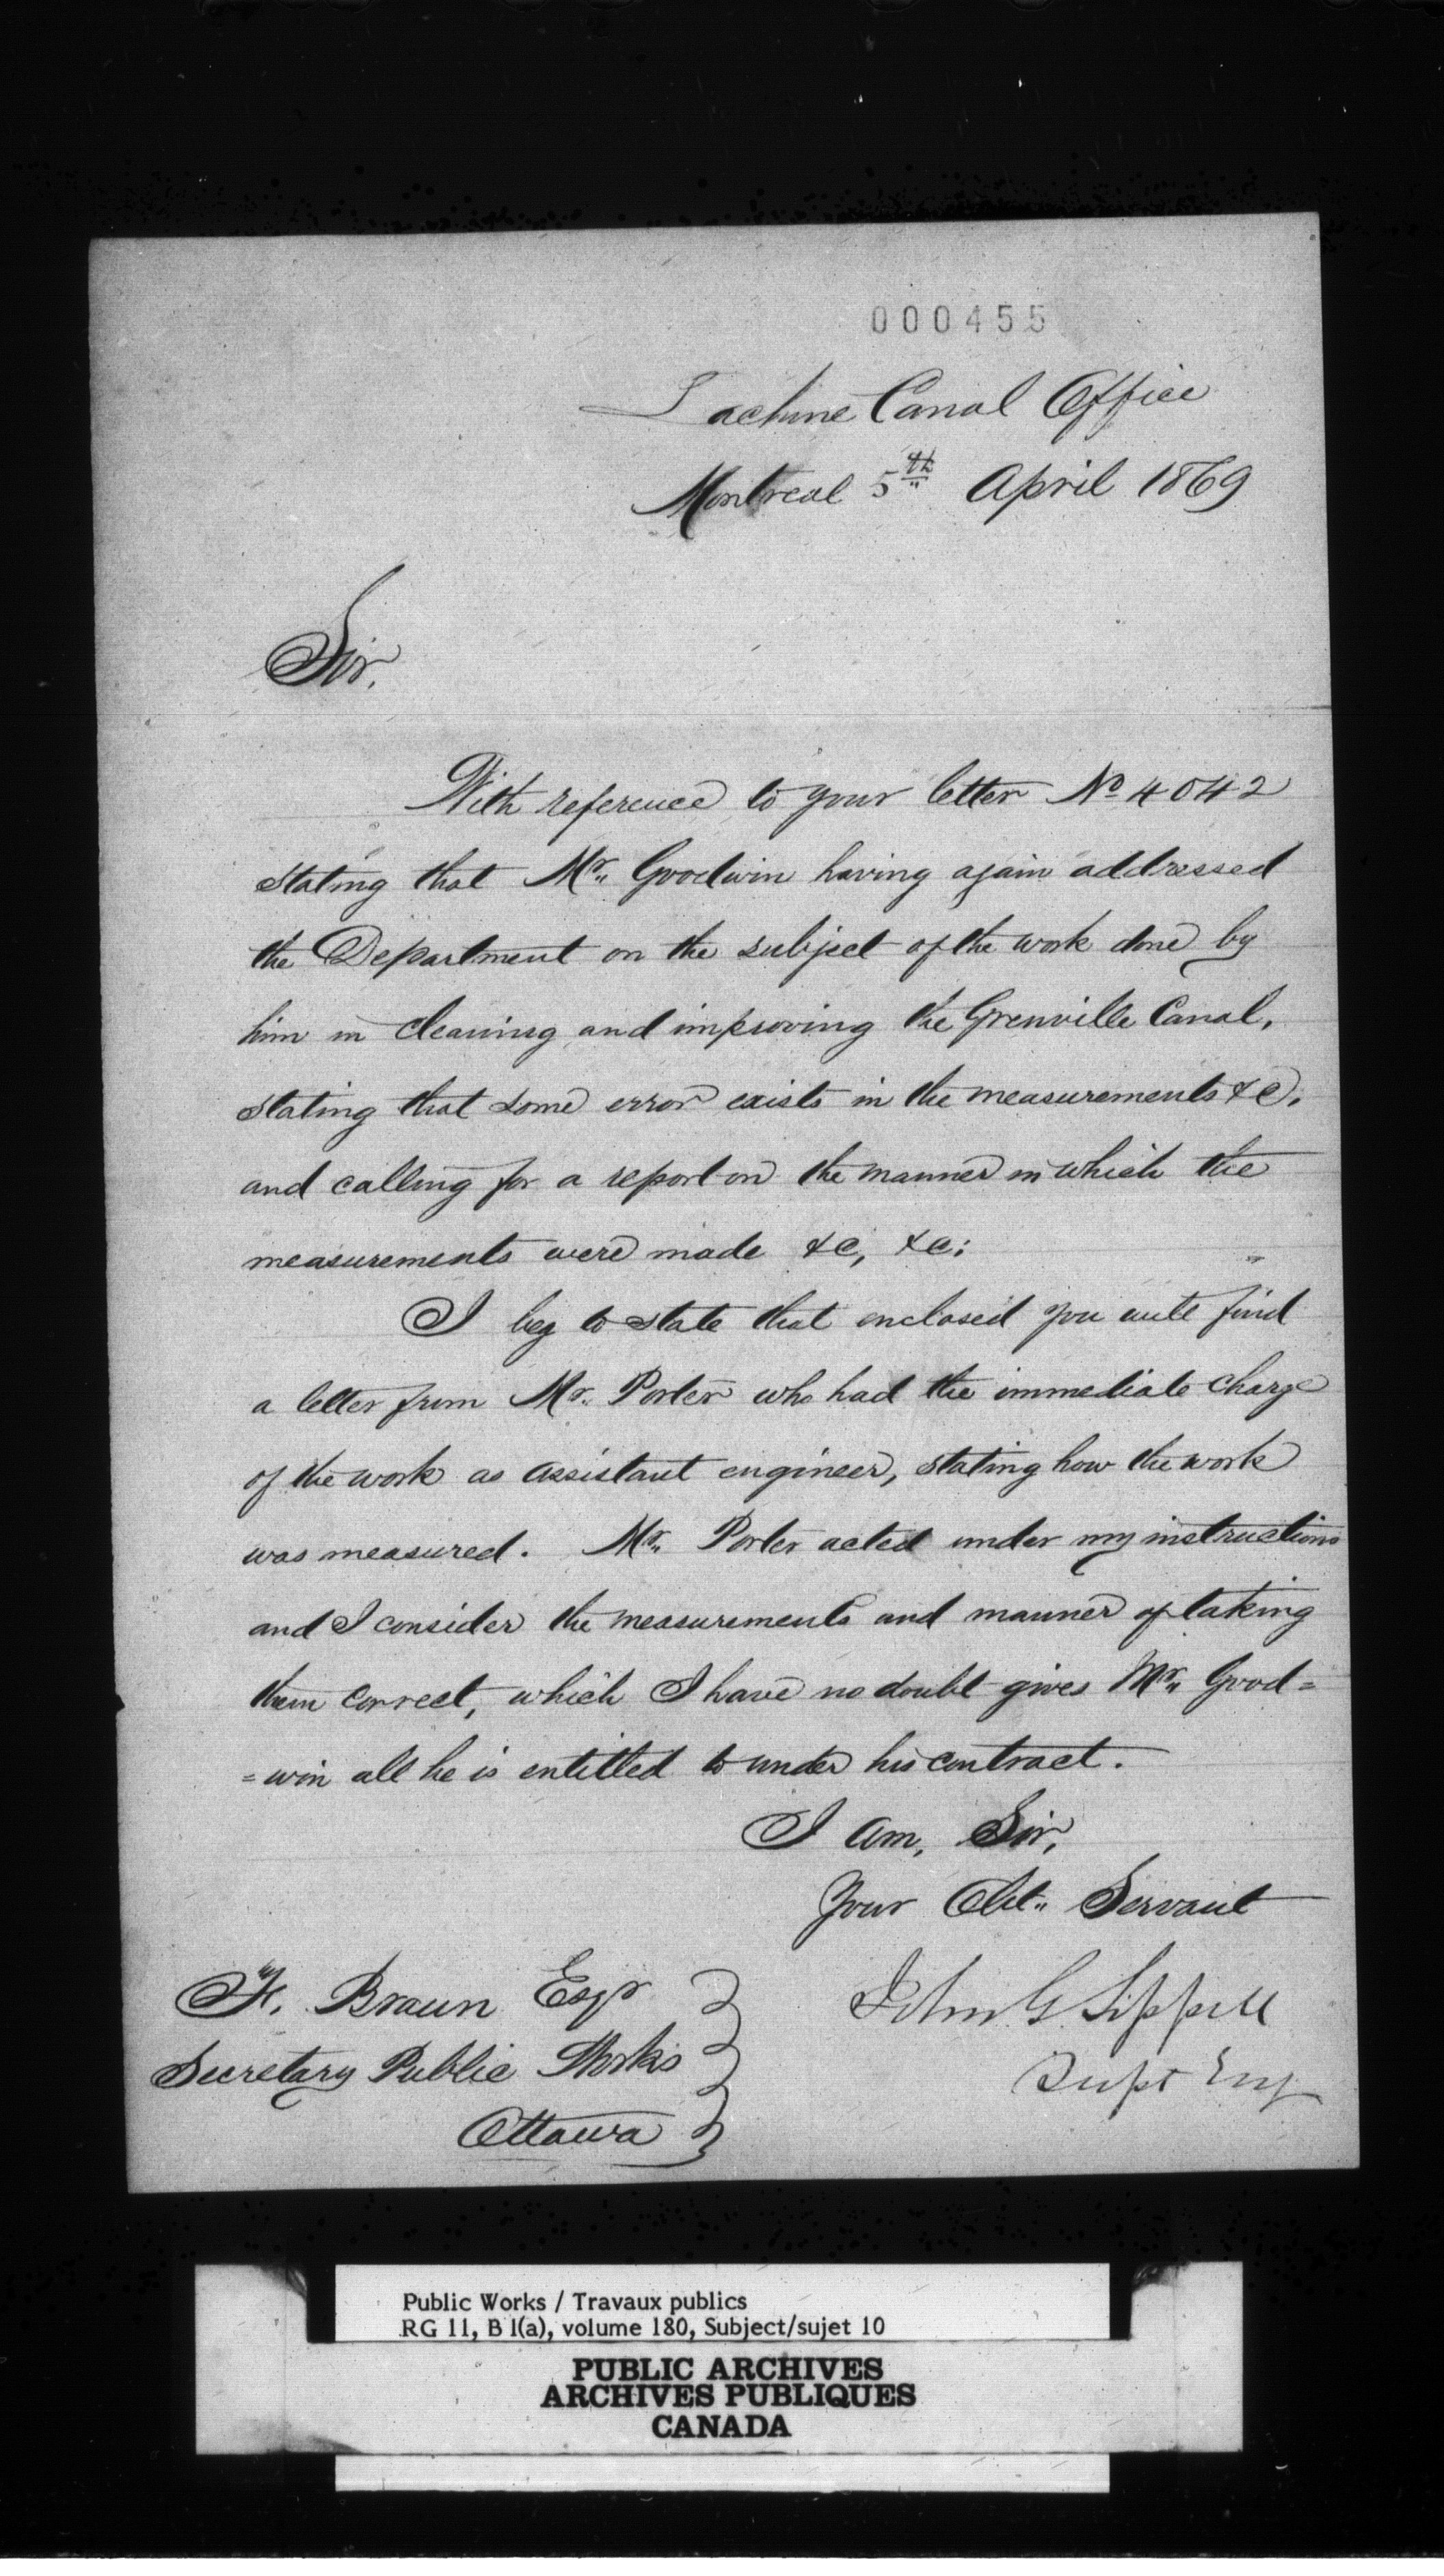 000455
Lachine Canal Office
Montreal 5th April 1869
Sir,
With reference to your letter No 4042
stating that Mr. Goodwin having again addressed
the Department on the subject of the work done by
him in cleaning and improving the Grenville Canal,
stating that some error exists in the measurements &c,
and calling for a report on the manner in which the
measurements were made &c, &c;
I beg to state that enclosed you will find
a letter from Mr. Porter who had the immediate charge
of the work as assistant engineer, stating how the work
was measured. Mr. Porter acted under my instructions
and I consider the measurements and manner of taking
them correct, which I have no doubt gives Mr. Good=
=win all he is entitled to under his contract.
I am, Sir,
Your Obt. Servant
John G Sippell
Supt Eng
F. Braun Esqr
Secretary Public Works
Ottawa
Public Works / Travaux publics
RG 11, B 1(a), volume 180, Subject/sujet 10
PUBLIC ARCHIVES
ARCHIVES PUBLIQUES
CANADA